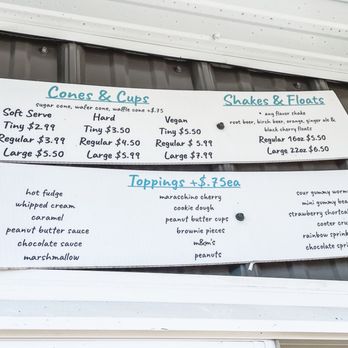 Cones & Cups
sugar cone, wafer cone, waffle cone +$.75
Soft Serve
Tiny $2.99
Regular $3.99
Large $5.50
Hard
Tiny $3.50
Regular $4.50
Large $5.99
Vegan
Tiny $5.50
Regular $ 5.99
Large $7.99
Shakes & Floats
* any flavor shake
root beer, birch beer, orange, ginger ale &
black cherry floats
Regular 16oz $5.50
Large 22oz $6.50
Toppings +$.75ea
hot fudge
whipped cream
caramel
peanut butter sauce
chocolate sauce
marshmallow
maraschino cherry
cookie dough
peanut butter cups
brownie pieces
m&m's
peanuts
sour gummy worm
mini gummy bea
strawberry shortca
cooter cru
rainbow sprink
chocolate sprin